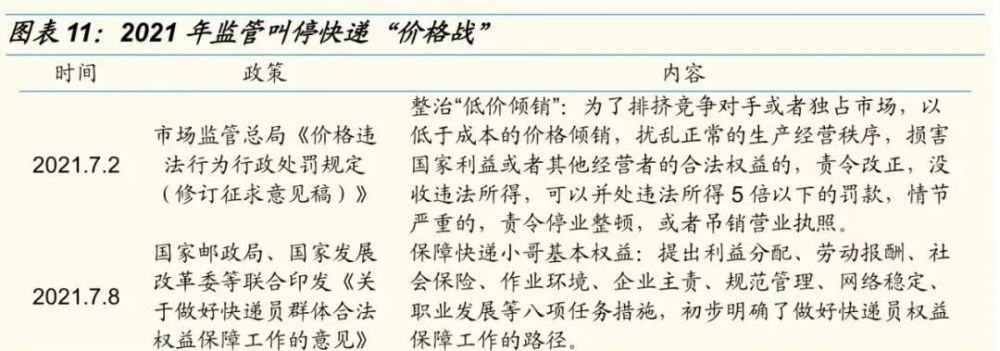 图表 11：2021 年监管叫停快递“价格战”
时间 政策 内容
2021.7.2
市场监管总局《价格违
法行为行政处罚规定
（修订征求意见稿）》
整治“低价倾销”：为了排挤竞争对手或者独占市场，以
低于成本的价格倾销，扰乱正常的生产经营秩序，损害
国家利益或者其他经营者的合法权益的，责令改正，没
收违法所得，可以并处违法所得 5 倍以下的罚款，情节
严重的，责令停业整顿，或者吊销营业执照。
2021.7.8
国家邮政局、国家发展
改革委等联合印发《关
于做好快递员群体合法
权益保障工作的意见》
保障快递小哥基本权益：提出利益分配、劳动报酬、社
会保险、作业环境、企业主责、规范管理、网络稳定、
职业发展等八项任务措施，初步明确了做好快递员权益
保障工作的路径。